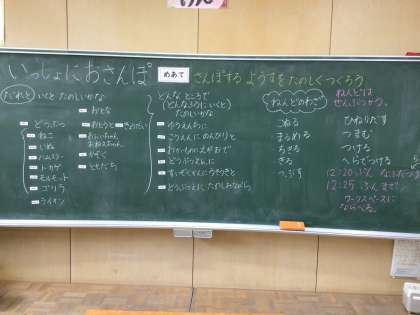 いっしょにおさんぽ
めあて
さんぽする ようすを たのしくつくろう
だれと いくと たのしいかな
どうぶつ
ねこ
いぬ
ハムスター
トカゲ
モルモット
ゴリラ
ライオン
おとな
おとうと
きょうだい
おにいちゃん
おねえちゃん
かぞく
ともだち
どんな ところで
(どんなふうに いくと)
たのしいかな
ゆうえんちに
こうえんに のんびりと
どうぶつえんに
すいぞくかんに うきうきと
どうぶつえんに たのしみながら
ねんどのわざ
ぬる
まるめる
ちぎる
きる
つぶす
ひねりだす
つまむ
つける
へらでつける
ねんどは
ぜんぶつかう。
12:20
12:25
ワークスペースに
ならべる。